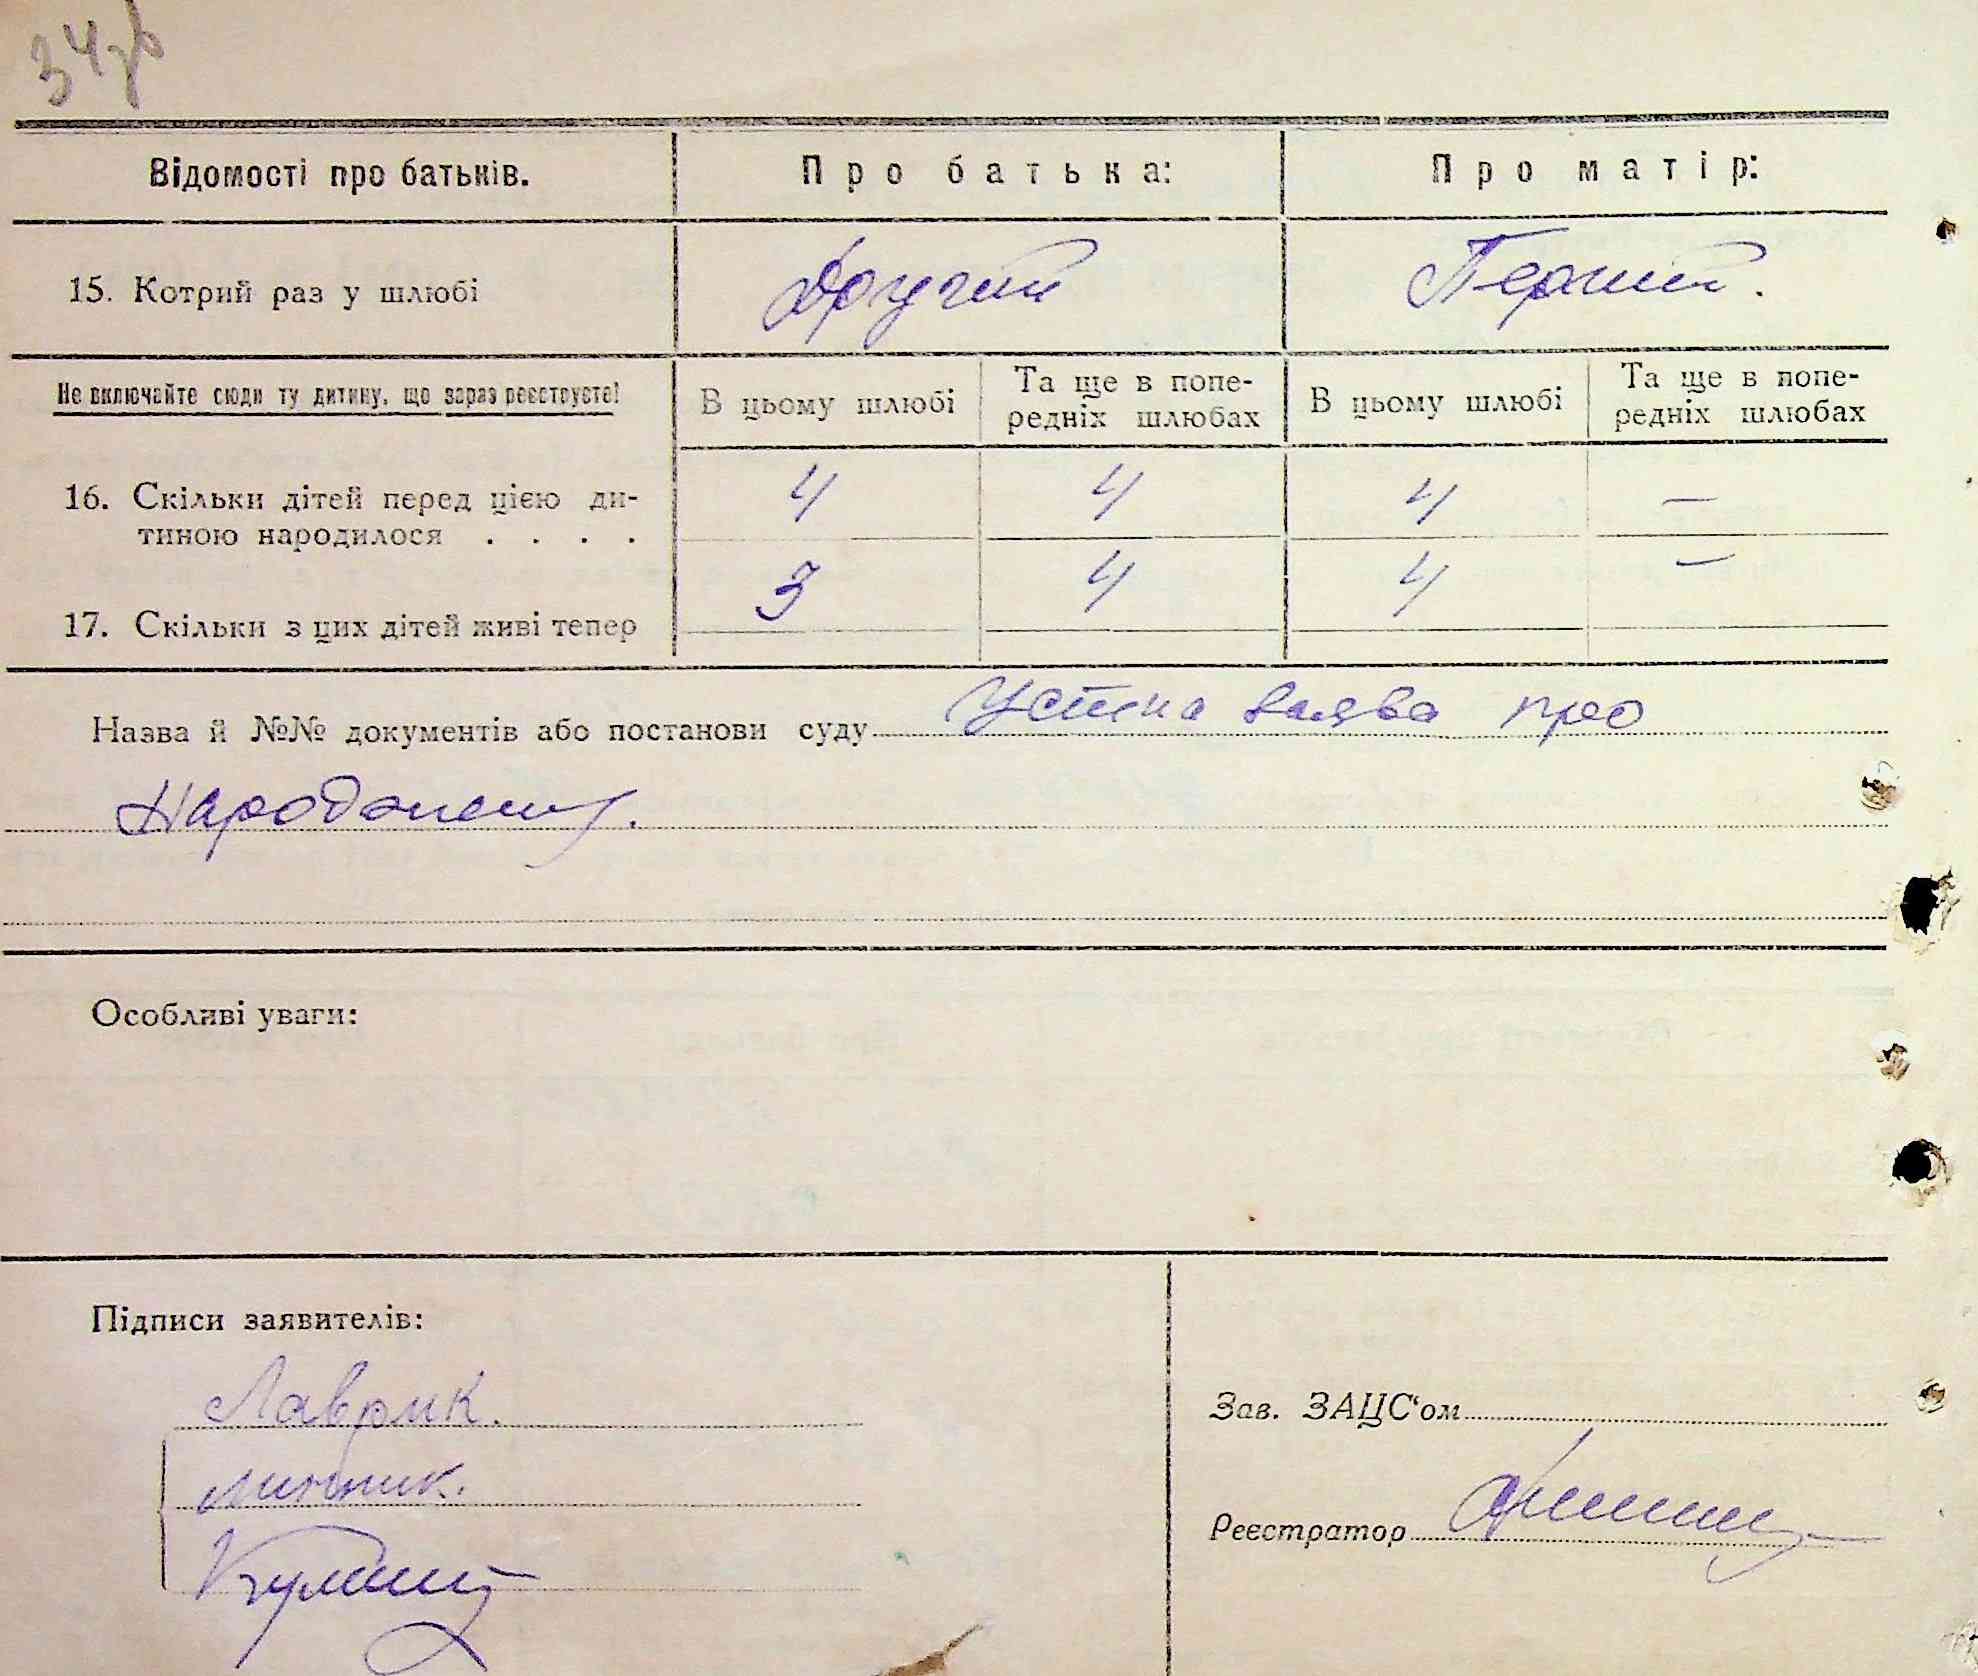 34зв
Відомості про батьків. Про батька: Про матір:
15. Котрий раз у шлюбі Другий Перший.
Не включайте сюди ту дитину, що зараз реєструєте! В цьому шлюбі Та ще в попе-редніх шлюбах В цьому шлюбі Та ще в попе-редніх шлюбах
16. Скільки дітей перед цією ди- 4 4 4 —
тиною народилося . . . .
17. Скільки з цих дітей живі тепер 3 4 4 —
Назва й №№ документів або постанови суду Устна заява про
Народжену.
Особливі уваги:
Підписи заявителів:
Лаврик.
Линник.
Зав. ЗАЦС'ом
Реєстратор